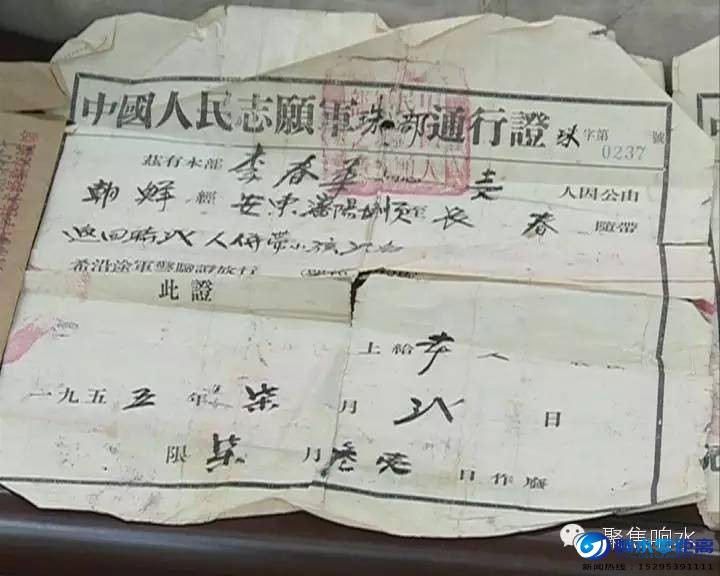 中國人民志願軍珠部通行證 珠字第0237號
茲有本部李春 人因公由
朝鮮經安東瀋陽撫順至長春隨帶
返回時弍人併帶小孩
希沿途軍警驗證放行
此證
上給李
一九五五年柒月弍日
限柒月 日作廢
聚焦响水
新闻热线：15295391111